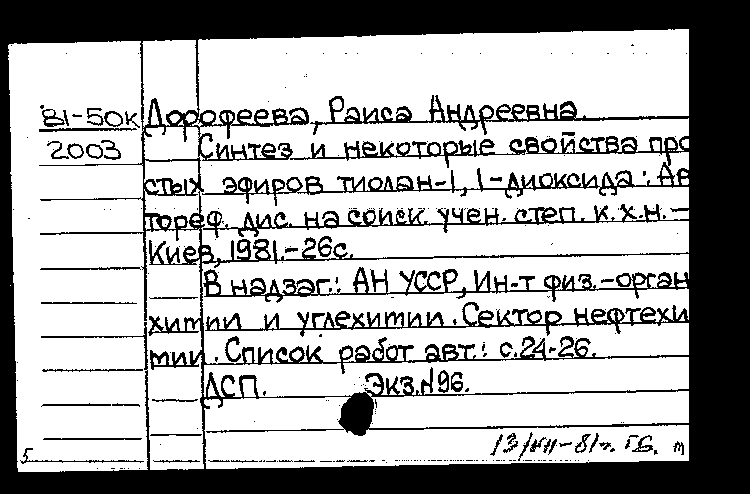 81-50к Дорофеева, Раиса Андреевна.
2003 Синтез и некоторые свойства про
стых эфиров тиолан-1, 1-диоксида : Ав
тореф. дис. на соиск. учен. степ. к. х.н. —
Киев, 1981.-26с.
В надзаг.: АН УССР, Ин-т физ.-орган
химии и углехимии. Сектор нефтехи
мии. Список работ авт.: с.24-26.
ДСП. Экз.№96.
5 т